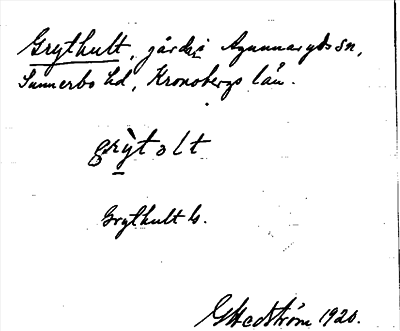 Grythult, gård i Agunnaryds sn,
Sunnerbo hd, Kronobergs län.
grỳtɔlt
Grythult b.
G Hedström 1920.